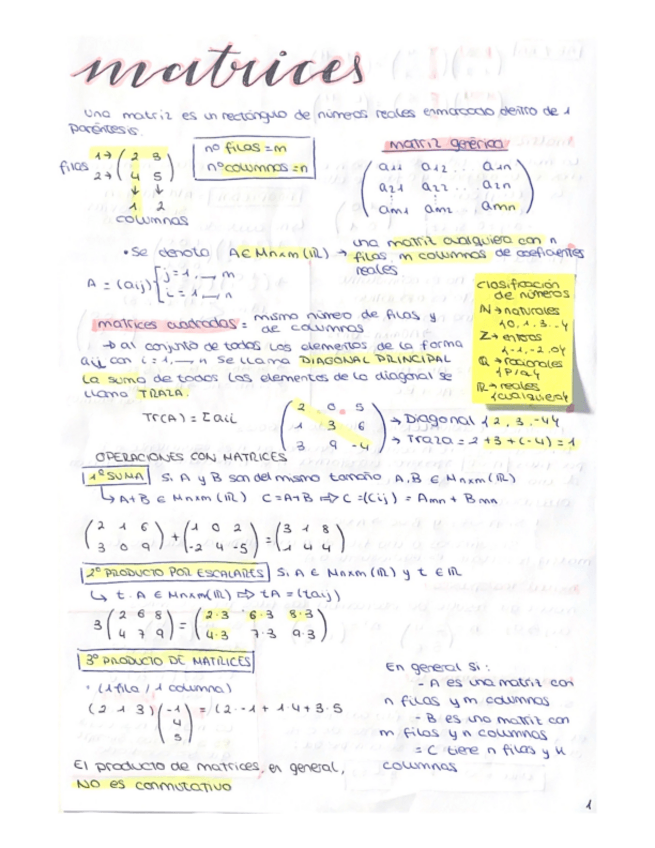 matrices
Una matriz es un rectángulo de números reales enmarcado dentro de 1
paréntesis.
filas 1→ ( 2 3 )
2→ ( 4 5 )
↓ ↓
1 2
columnas
nº filas = m
nº columnas = n
matriz genérica
( a11 a12 .. a1n )
( a21 a22 .. a2n )
( am1 am2 ... amn )
• Se denota A ∈ Mnxm (IR) → una matriz cualquiera con n
filas, m columnas de coeficientes
reales.
A = (aij) [ j = 1, → m
i = 1, → n
clasificación
de números
N → naturales
{0, 1, 3...}
Z → enteros
{-1, -2, 0}
Q → racionales
R → reales
{cualquiera}
matrices cuadradas = mismo número de filas y
de columnas
→ al conjunto de todos los elementos de la forma
aij con i = 1, → n se llama DIAGONAL PRINCIPAL
La suma de todos los elementos de la diagonal se
llama TRAZA.
Tr(A) = Σ aii
( 2 0 5 )
( 1 3 6 )
( 3 9 -4 )
→ Diagonal {2, 3, -4}
→ Traza = 2 + 3 + (-4) = 1
OPERACIONES CON MATRICES
1º SUMA Si A y B son del mismo tamaño A, B ∈ Mnxm (IR)
↳ A+B ∈ Mnxm (IR) C = A+B ⇒ C = (Cij) = Amn + Bmn
( 2 1 6 ) + ( 1 0 2 ) = ( 3 1 8 )
( 3 0 9 ) ( -2 4 -5 ) ( 1 4 4 )
2º PRODUCTO POR ESCALARES Si A ∈ Mnxm (IR) y t ∈ IR
↳ t · A ∈ Mnxm (IR) ⇒ tA = (taij)
3 ( 2 6 8 ) = ( 2·3 6·3 8·3 )
( 4 7 9 ) ( 4·3 7·3 9·3 )
3º PRODUCTO DE MATRICES
· (1 fila / 1 columna)
( 2 1 3 ) ( -1 ) = (2·-1 + 1·4 + 3·5
4
5
El producto de matrices, en general,
NO es conmutativo
En general si:
- A es una matriz con
n filas y m columnas
- B es una matriz con
m filas y n columnas
= C tiene n filas y k
columnas
1